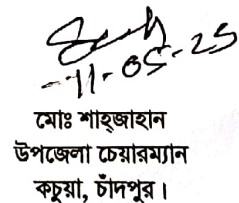 -11-05-25
মোঃ শাহ্জাহান
উপজেলা চেয়ারম্যান
কচুয়া, চাঁদপুর।